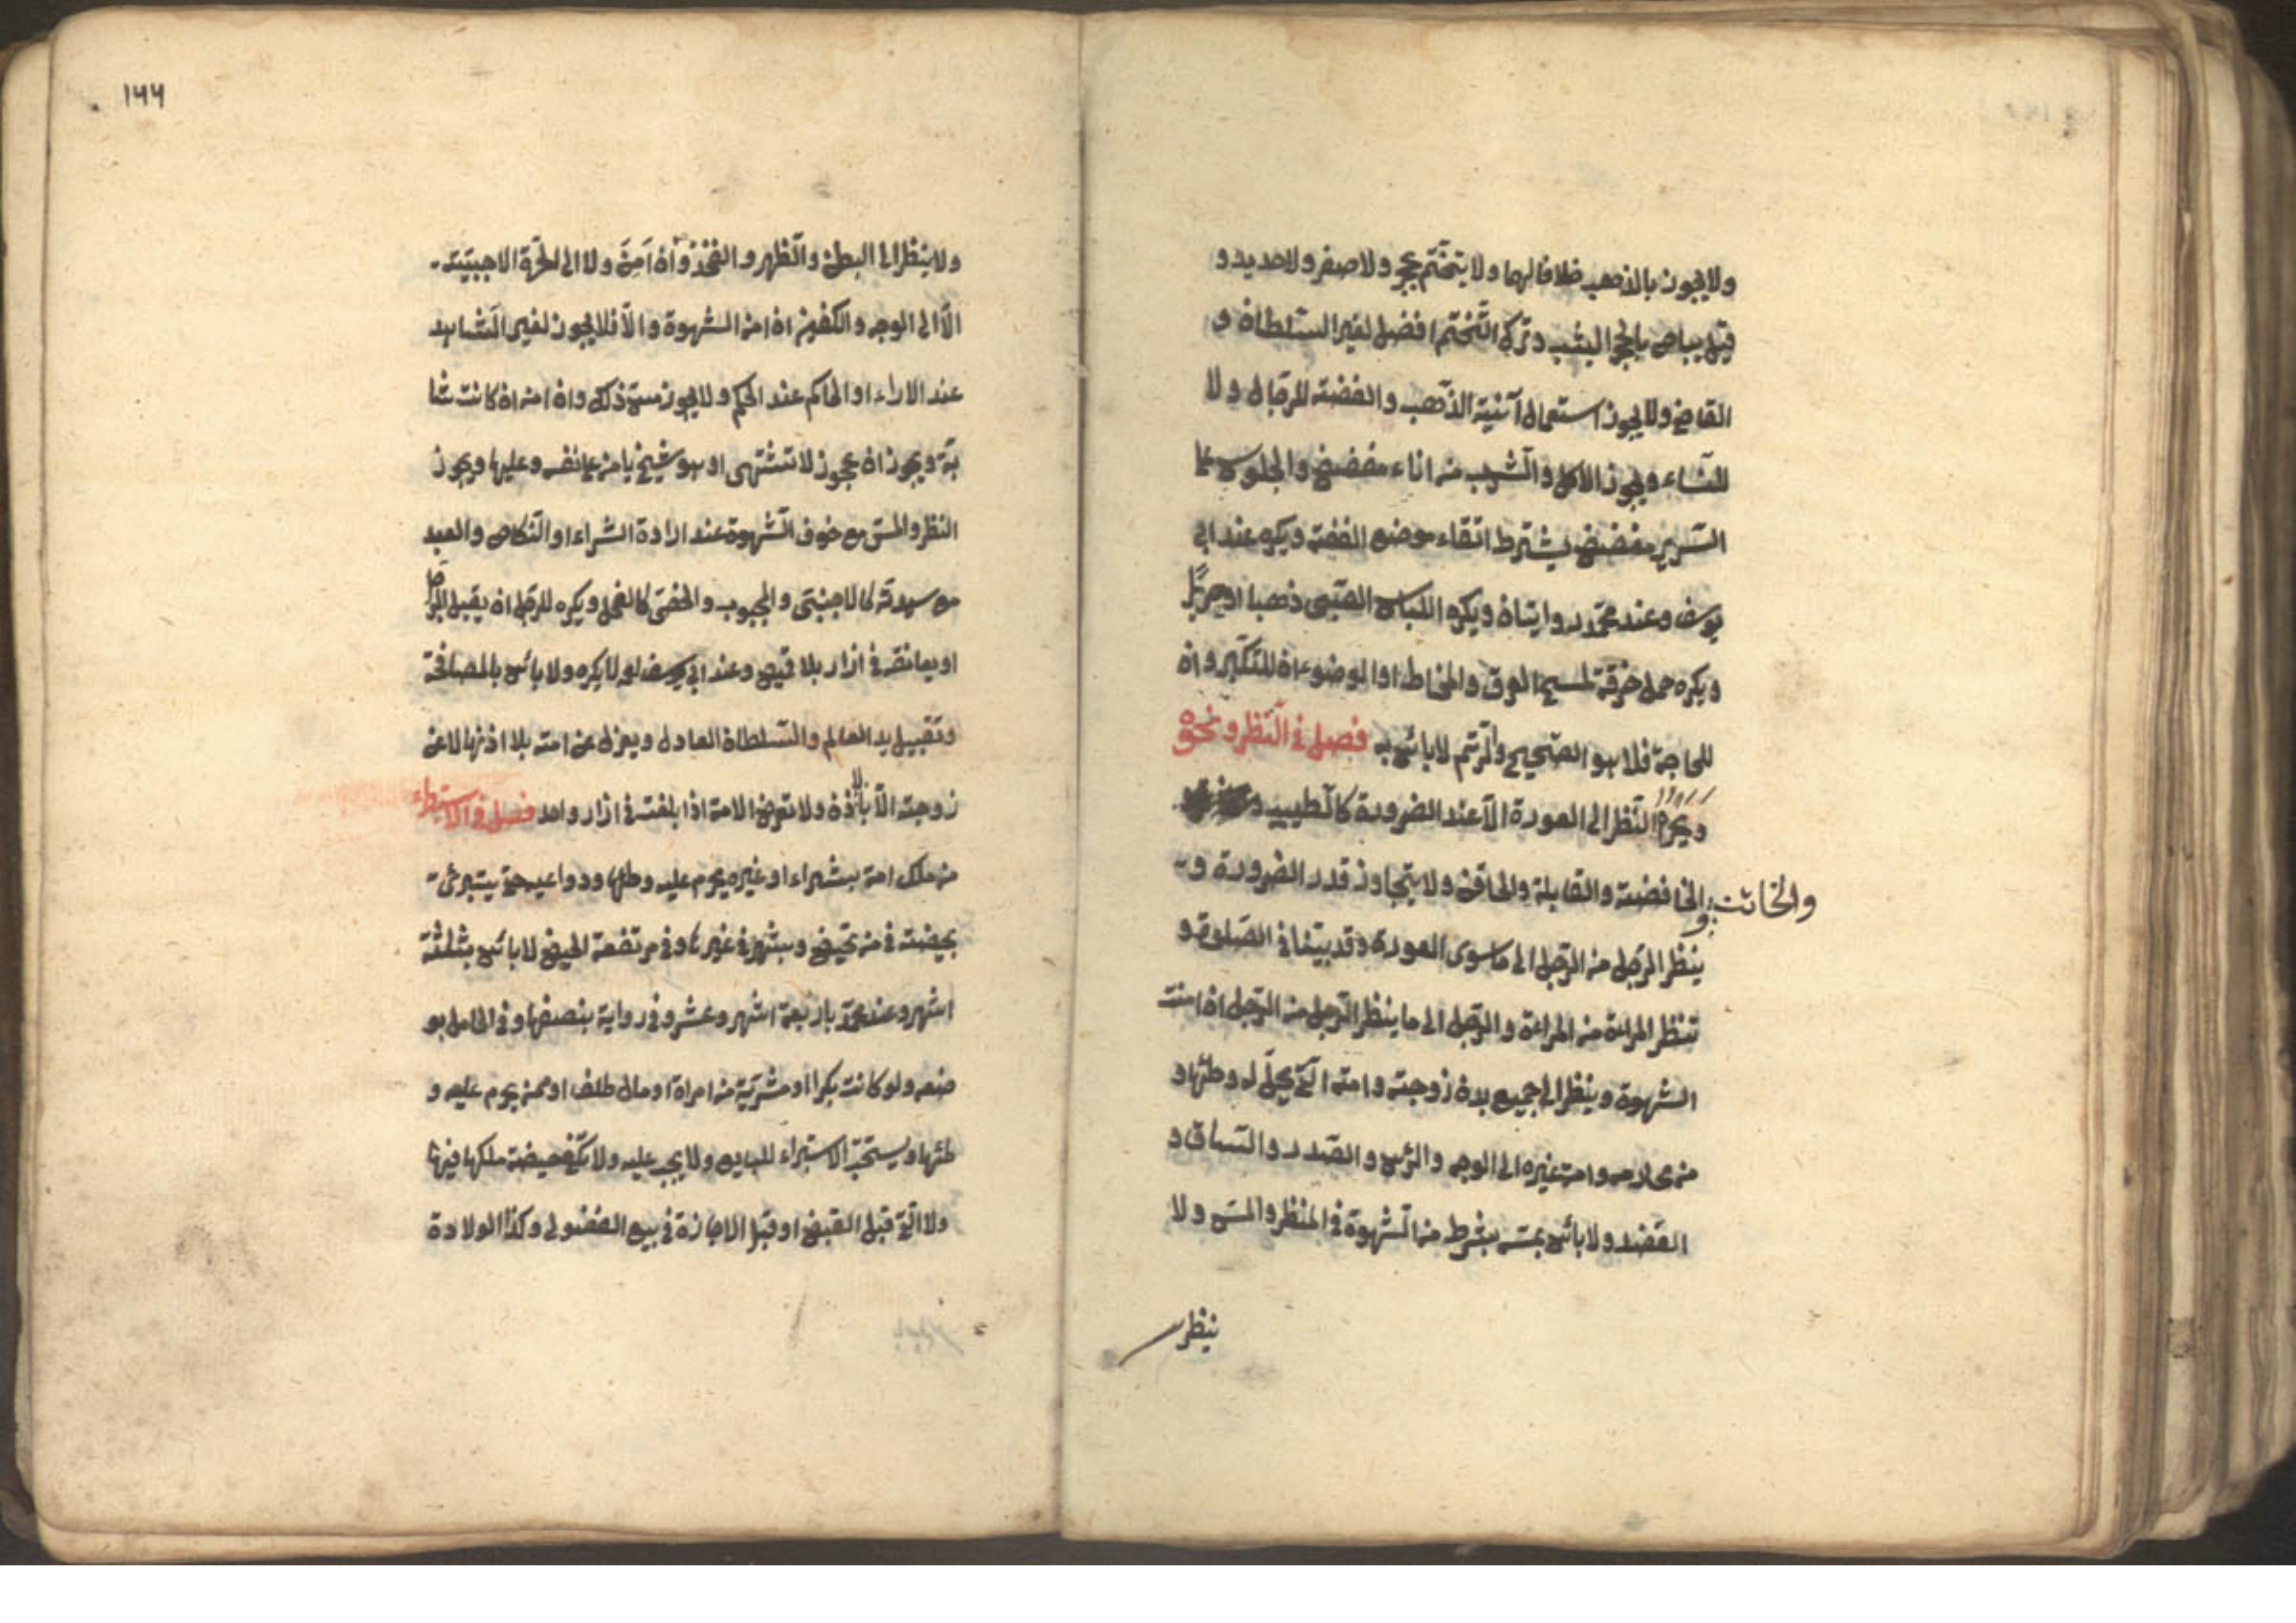 ولا يجوز بالذهب خلافا لهما ولا يتختّم بحجر ولا صفر ولا حديد و
قيل يباح بالحجر اليشب وترك التّختم افضل لغير السّلطان و
القاضي ولا يجوز استعمال آنية الذّهب والفضة للرّجال ولا
للنّساء ويجوز الاكل والشّرب من اناء مفضض والجلوس على
السّرير مفضض بشرط اتقاء موضع الفضة ويكره عند ابي
يوسف وعند محمّد روايتان ويكره اللباس الصّبي ذهبا او حريرًا
ويكره حمل خرقة لمسح العرق والمخاط او الوضوء ان للتكبّر وان
للحاجة فلا هو الصّحيح والرّتم لا بائس به فصل في النّظر ونحوه
ويحرم النّظر الى العورة الّا عند الضرورة كالطّبيب و
والخاتن
والخافضة والقابلة والحاقن ولا يتجاوز قدر الضرورة و
ينظر الرّجل من الرّجل الى ما سوى العورة وقد بيّنا في الصّلوة و
تنظر المراءة من المراءة والرّجل الى ما ينظر الرّجل من الرّجل ان امنت
الشهوة وينظر الى جميع بدن زوجته وامته الّتي يحلّ له وطئها و
من محارمه وامة غيره الى الوجه والرّئس والصّدر والسّاق و
العضد ولا بائس بمسّه بشرط من الشّهوة في النظر والمسّ ولا
ينظر
١٦٦
ولا ينظر الى البطن والظّهر والفخذ وان اَمِنَ ولا الى الحرّة الاجنبيّة
الّا الى الوجه والكفين ان امن الشهوة والّا فلا يجوز لغير الشّاهد
عند الاداء او الحاكم عند الحكم ولا يجوز مسّ ذلك وان امن ان كانت شا
بّة ويجوز ان عجوز لا تشتهى او هو شيخ يامن على نفسه وعليها ويجوز
النظر والمسّ مع خوف الشّهوة عند ارادة الشراء او النّكاح والعبد
مع سيدته كالاجنبّى والمجبوب والخصّى كالفحل ويكره للرّجل ان يقبل الرّجل
او يعانقه في ازار بلا قميص وعند ابي يوسف لا يكره ولا بائس بالمصافحة
وتقبيل يد العالم والسّلطان العادل ويعزل عن امته بلا اذنها لا عن
زوجته الّا باذنه ولا تعرض الامة اذا بلغت في ازار واحد فصل في الاستبراء
من ملك امة بشراء او غيره يحرم عليه وطئها ودواعيه حتى يستبرئ
بحيضة في من تحيض وبشهر في غيرها وفي مرتفعة الحيض لا بائس بثلثة
اشهر وعند محمّد باربعة اشهر وعشر وفي رواية بنصفها وفي الحامل بو
ضعه ولو كانت بكرا او مشريّة من امراة او مال طفل او ممن يحرم عليه و
طئها ويستحبّ الاستبراء للبايع ولا يجب عليه ولا تكفي حيضة ملكها فيها
ولا الّتي قبل القبض او قبل الاجازة في بيع الفضولي وكذا الولادة